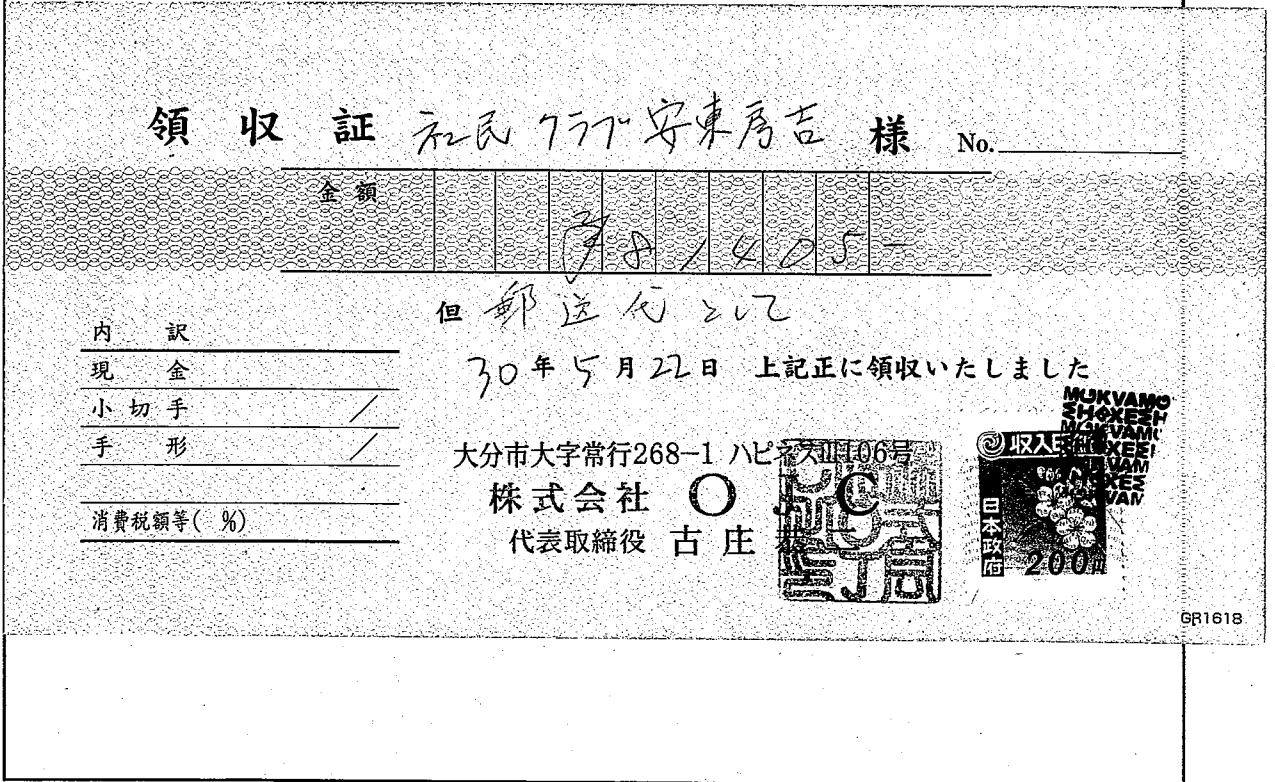 領収証 社民クラブ 安東房吉 様 No.
金額
¥81405-
但 郵送代として
内訳
30年5月22日 上記正に領収いたしました
現金
小切手 /
手形 /
消費税額等( %)
大分市大字常行268-1 ハピネスIII106号
株式会社 OJC
代表取締役 古庄
収入印紙
日本政府
200円
GR1618